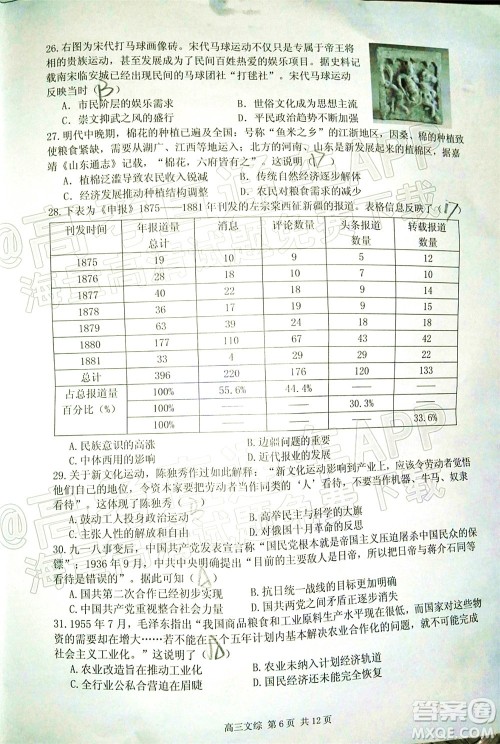 26.右图为宋代打马球画像砖。宋代马球运动不仅只是专属于帝王将
相的贵族运动,甚至发展成为了民间百姓热爱的娱乐项目。据史料记
载南宋临安城已经出现民间的马球团社“打毬社”。宋代马球运动
反映当时( B )
A.市民阶层的娱乐需求 B.世俗文化成为主流思想
C.崇文抑武之风的盛行 D.政治经济水平不断提升
27.明代中晚期,棉花的种植已遍及全国;号称“鱼米之乡”的江浙地区,因桑、棉的种植
致使粮食紧缺,需要从湖广、江西等地输入;北方的河南、山东是新发展起的植棉区,据嘉
靖《山东通志》记载,“棉花,六府皆有之”。这说明( )
A.植棉泛滥导致农民收入锐减 B.国内长途贩运贸易兴盛
C.经济发展推动种植结构调整 D.传统自然经济结构解体
28.下表为《申报》1875——1881年刊发的左宗棠西征新疆的报道。表格信息反映了( )
刊发时间 年报道量总计 消息 评论数量 头条报道数量 转载报道数量
1875 19 10 9 5 12
1876 28 18 10 6 11
1877 40 22 18 9 10
1878 66 38 28 24 20
1879 78 42 36 26 21
1880 112 60 52 32 35
1881 53 30 23 18 24
总计 396 220 176 120 133
占总报道量百分比(%) 100% 55.6% 44.4% —— ——
100% —— —— 30.3% ——
100% —— —— —— 33.6%
A.民族意识的高涨 B.边疆问题的重要
C.中体西用的实践 D.近代报业的发展
29.关于新文化运动,陈独秀作过如此解释:“新文化运动影响到产业上,应该令劳动者觉悟
他们自己的地位,令资本家要把劳动者当做同类的‘人’看待,不要当做机器、牛马、奴隶
看待。”这体现出陈独秀( )
A.鼓动工人投身政治运动 B.高举民主与科学的大旗
C.主张人性的解放和自由 D.对俄国十月革命的反思
30.九一八事变后,中国共产党发表宣言称“国民党根本就是帝国主义压迫屠杀中国民众的保
镖”;1936年9月,中共中央认为“目前中国的主要敌人是日帝,所以把日帝与蒋介石同等
看待是错误的”。据此可知( A )
A.国共第二次合作已经初步实现 B.抗日统一战线的目标更加明确
C.中国共产党革命策略适时调整 D.国共两党之间矛盾逐步消失
31.1955年7月,毛泽东指出“我国商品粮食和工业原料生产水平现在很低,而国家对这些物
资的需要却在年年增大……若不能在大约三个五年计划内基本解决农业合作化的问题,就不可能完成
社会主义工业化。”这说明了( )
A.农业改造在于推动工业化 B.农业未纳入计划经济轨道
C.全行业公私合营迫在眉睫 D.国家工业化体系初步形成
高三文综 第6页 共12页
答案圈
MXQE.COM